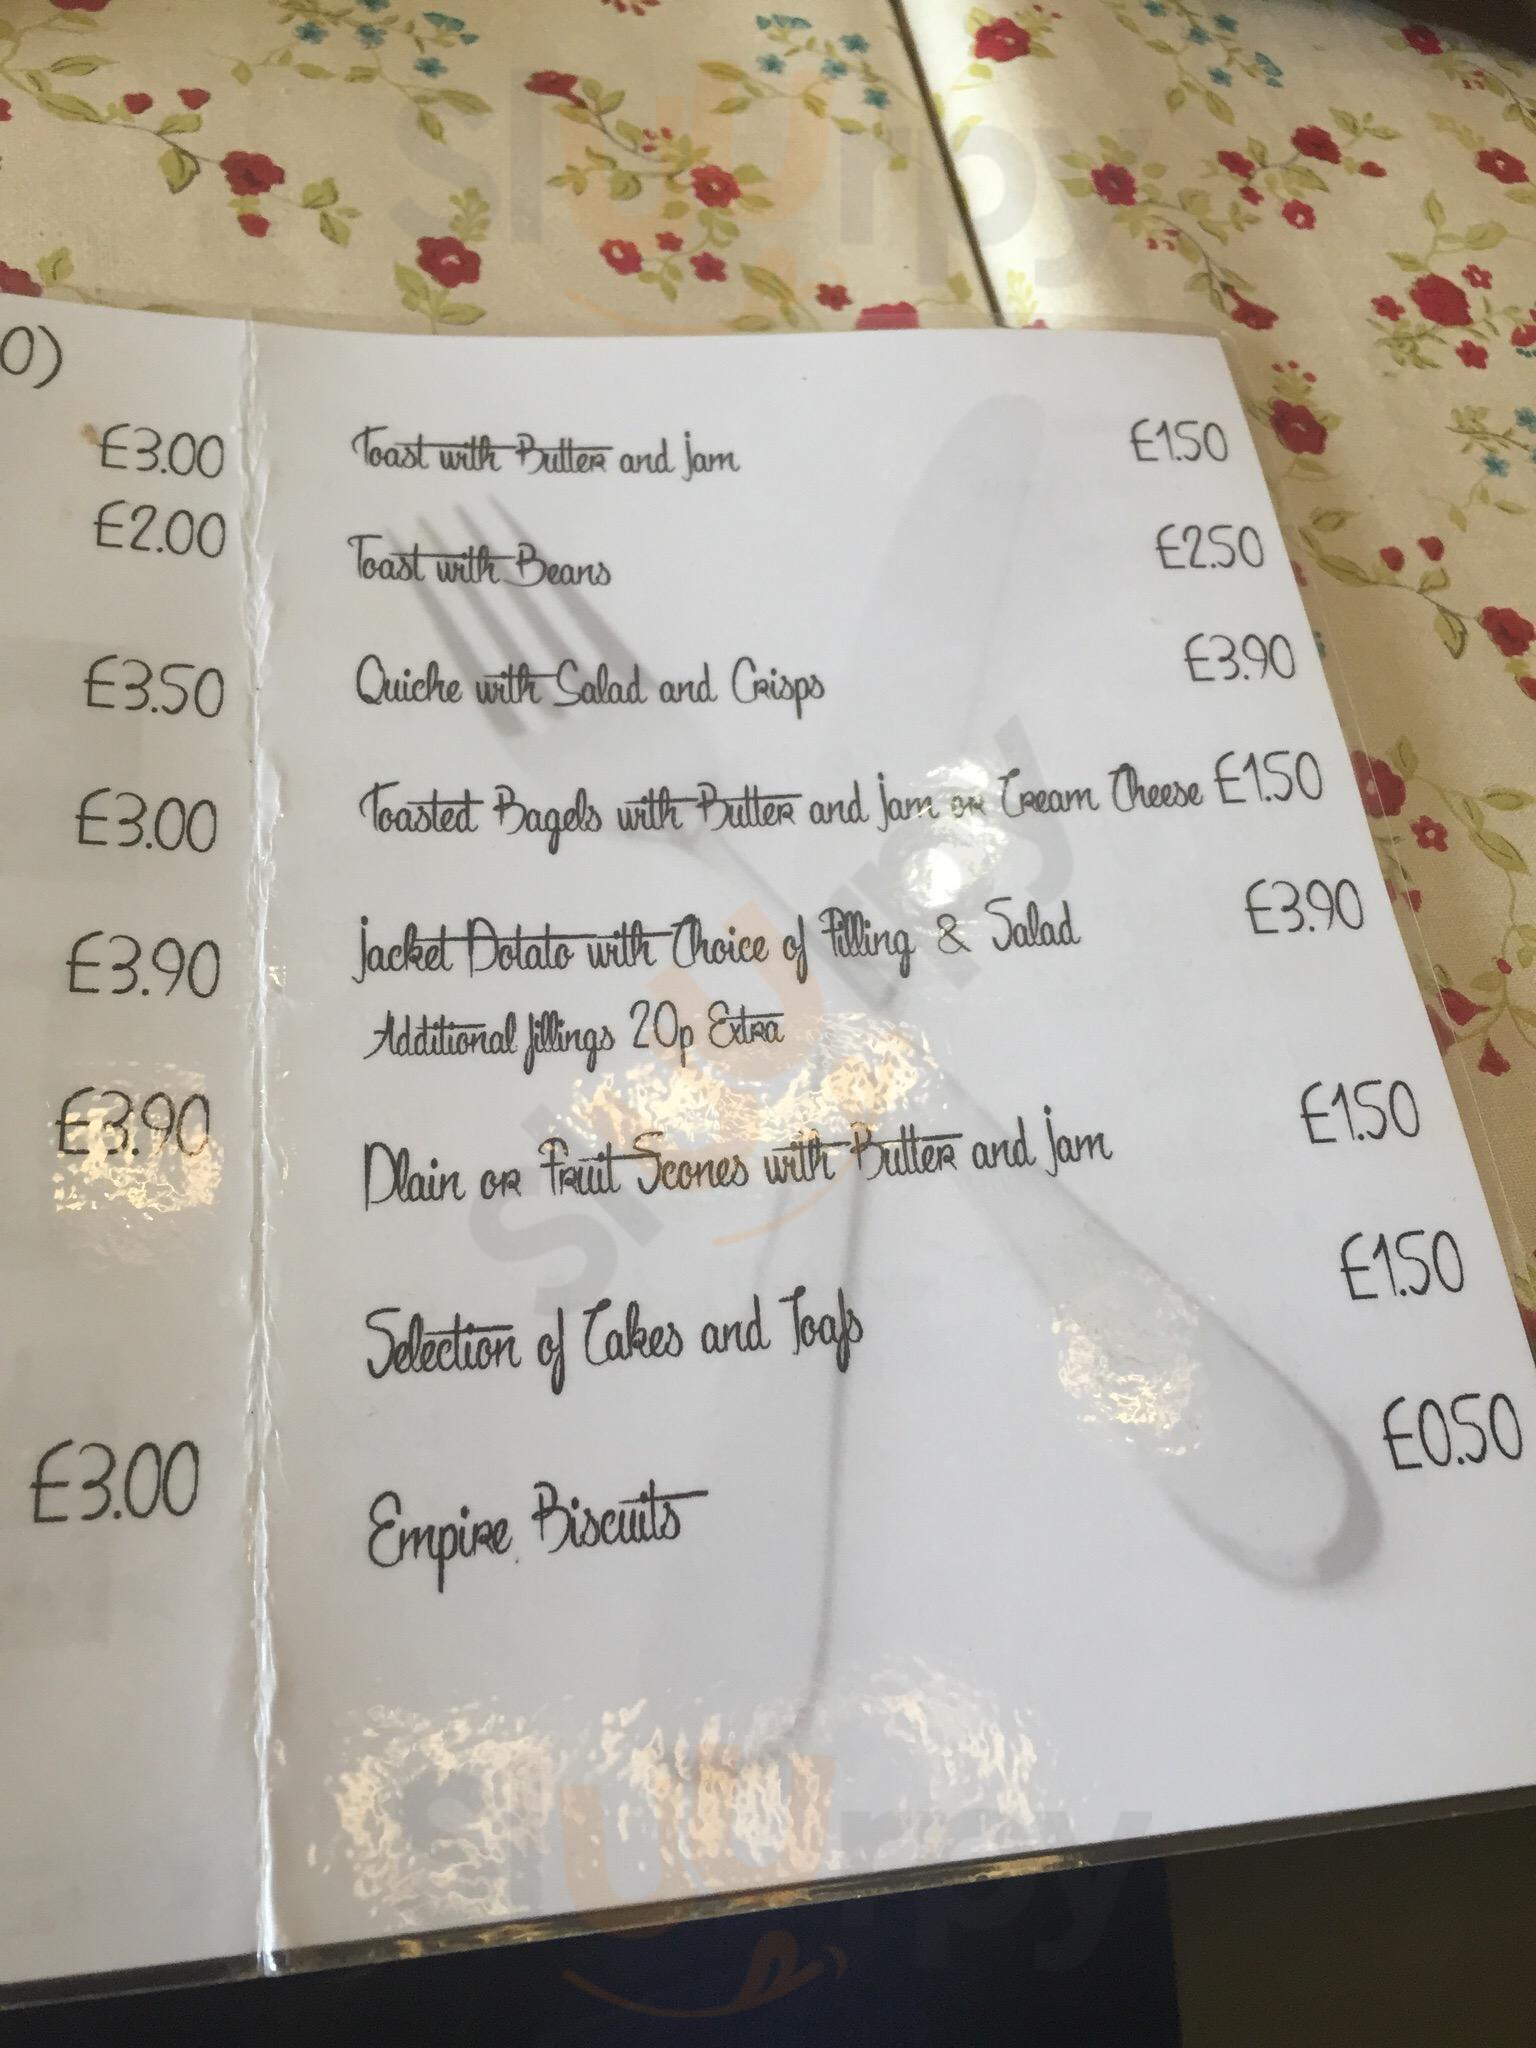 0)
£3.00
£2.00
£3.50
£3.00
£3.90
£3.90
£3.00
Toast with Butter and Jam £1.50
Toast with Beans £2.50
Quiche with Salad and Crisps £3.90
Toasted Bagels with Butter and Jam or Cream Cheese £1.50
Jacket Potato with Choice of Filling & Salad £3.90
Additional fillings 20p Extra
Plain or Fruit Scones with Butter and Jam £1.50
Selection of Cakes and Loafs £1.50
Empire Biscuits £0.50
Slurpy
Slurpy
Slurpy